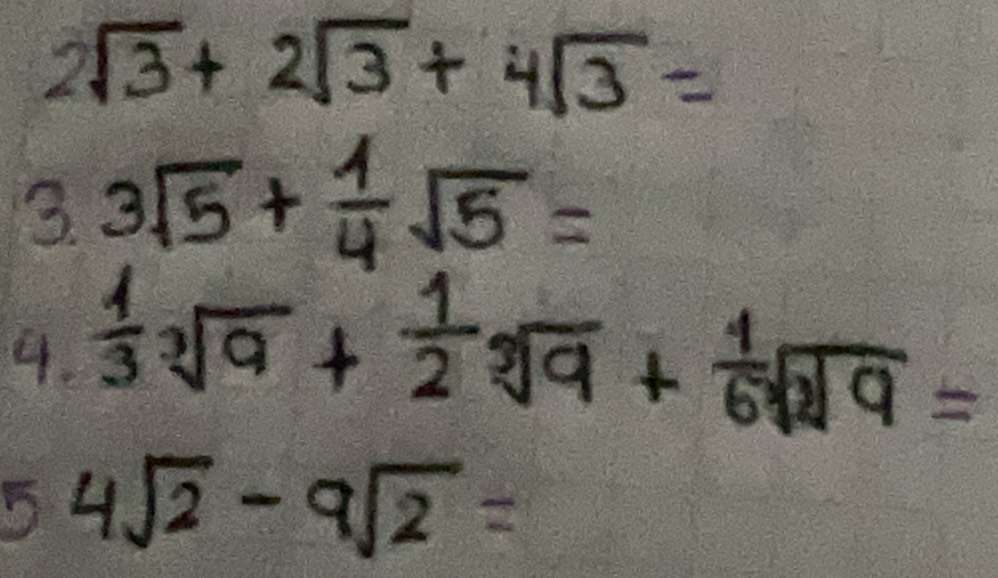 2√3 + 2√3 + 4√3 =
3. 3√5 + 1/4 √5 =
4. 1/3 ∛9 + 1/2 ∛9 + 1/6 ∛9 =
5 4√2 - 9√2 =